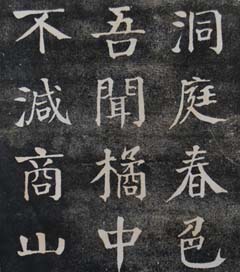 洞庭春色
吾聞橘中
不減商山